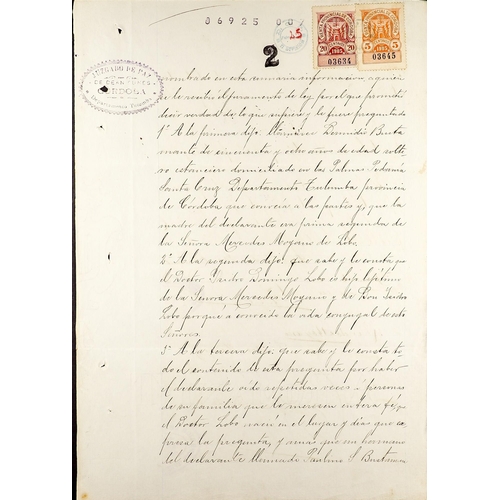 06925 00
25
2
20 1905 20
03634
5 1905 5
03645
JUZGADO DE PAZ
DE
CORDOBA
Departamento Tulumba
nombrado en esta sumaria informacion, a quien
se le recibió juramento de ley, por el que prometió
decir verdad de lo que supiere y le fuere preguntado
1ª A la primera dijo: llamarse Bermudio Busta
mante de cincuenta y ocho años de edad solte
ro estanciero domiciliado en las Palmas Pedanía
Santa Cruz Departamento Tulumba provincia
de Córdoba que conocia a las partes y, que la
madre del declarante era prima segunda de
la Señora Mercedes Moyano de Lobo.
2ª A la segunda dijo: que sabe y le consta que
el Doctor Isidro Domingo Lobo es hijo lejitimo
de la Señora Mercedes Moyano y de Don Isidro
Lobo porque a conocido la vida conyugal de estos
Señores.
3ª A la tercera dijo: que sabe y le consta to
do el contenido de esta pregunta por haber
el declarante oido repetidas veces a personas
de su familia que le merecen entera fé, que
el Doctor Lobo nació en el lugar y dias que es
presa la pregunta, y ademas que un hermano
del declarante llamado Paulino S. Bustaman